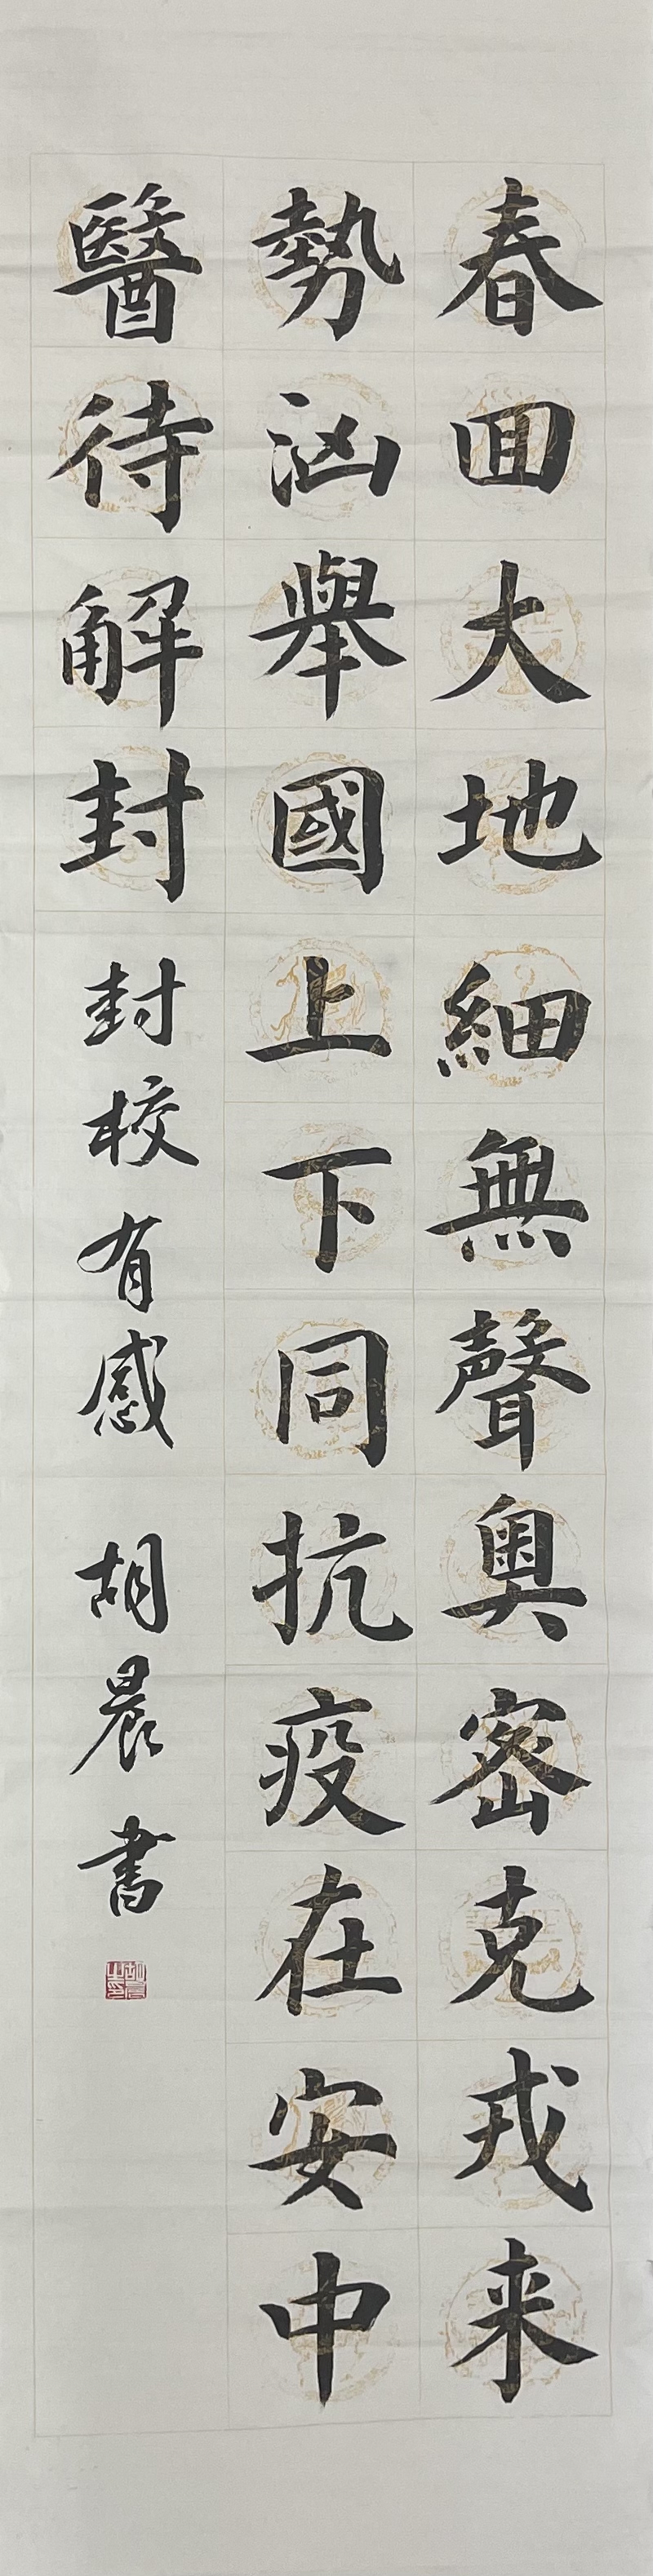 春回大地細無聲奥密克戎来
勢汹舉國上下同抗疫在安中
醫待解封封校有感胡晨書